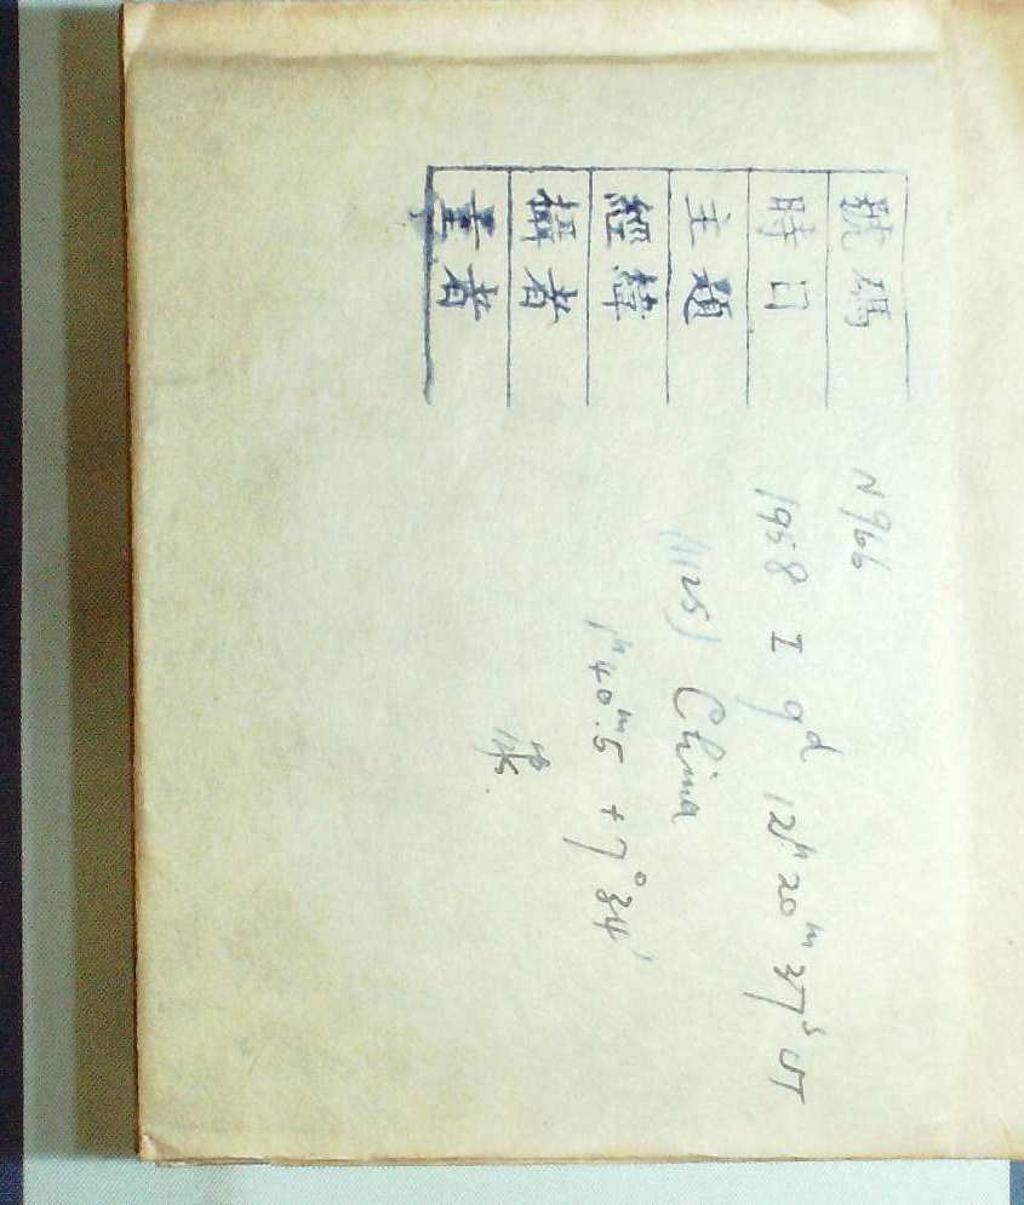 號碼 N966
時日 1958 I 9d 12h 20m 37s UT
主題 (1125) China
經緯 1h 40m.5 +7°34'
攝者
量者